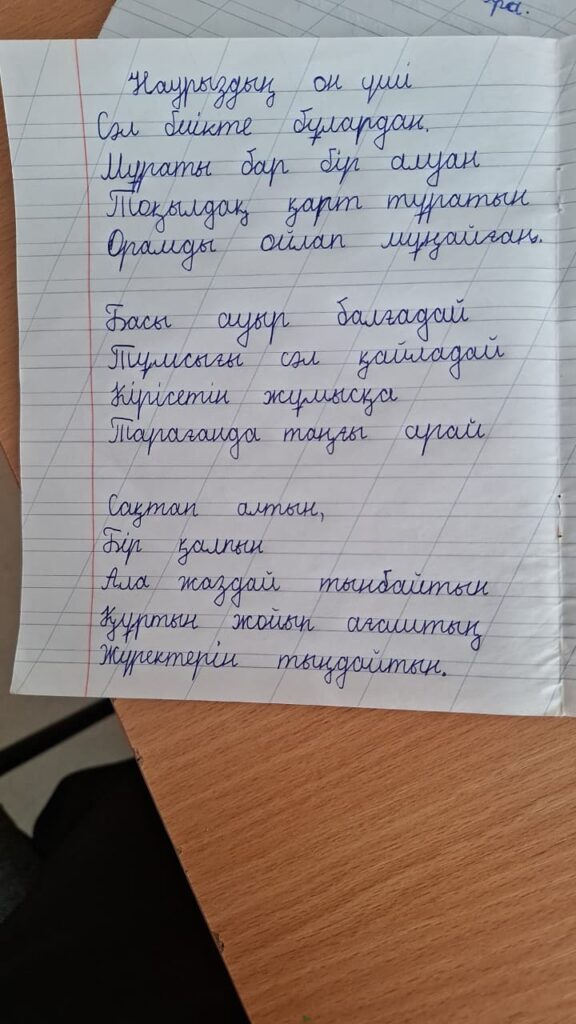 ра.
Наурыздың он үші
Сәл биікте бұлардан.
Мұраты бар бір алуан
Тоқылдақ қарт тұратын
Орамды ойлап мұңайған.
Басы ауыр балғадай
Тұмсығы сәл қайладай
Кірісетін жұмысқа
Тарағанда таңғы арай
Сақтап алтын,
Бір қалпын
Ала жаздай тынбайтын
Құртын жойып ағаштың
Жүректерін тыңдайтын.